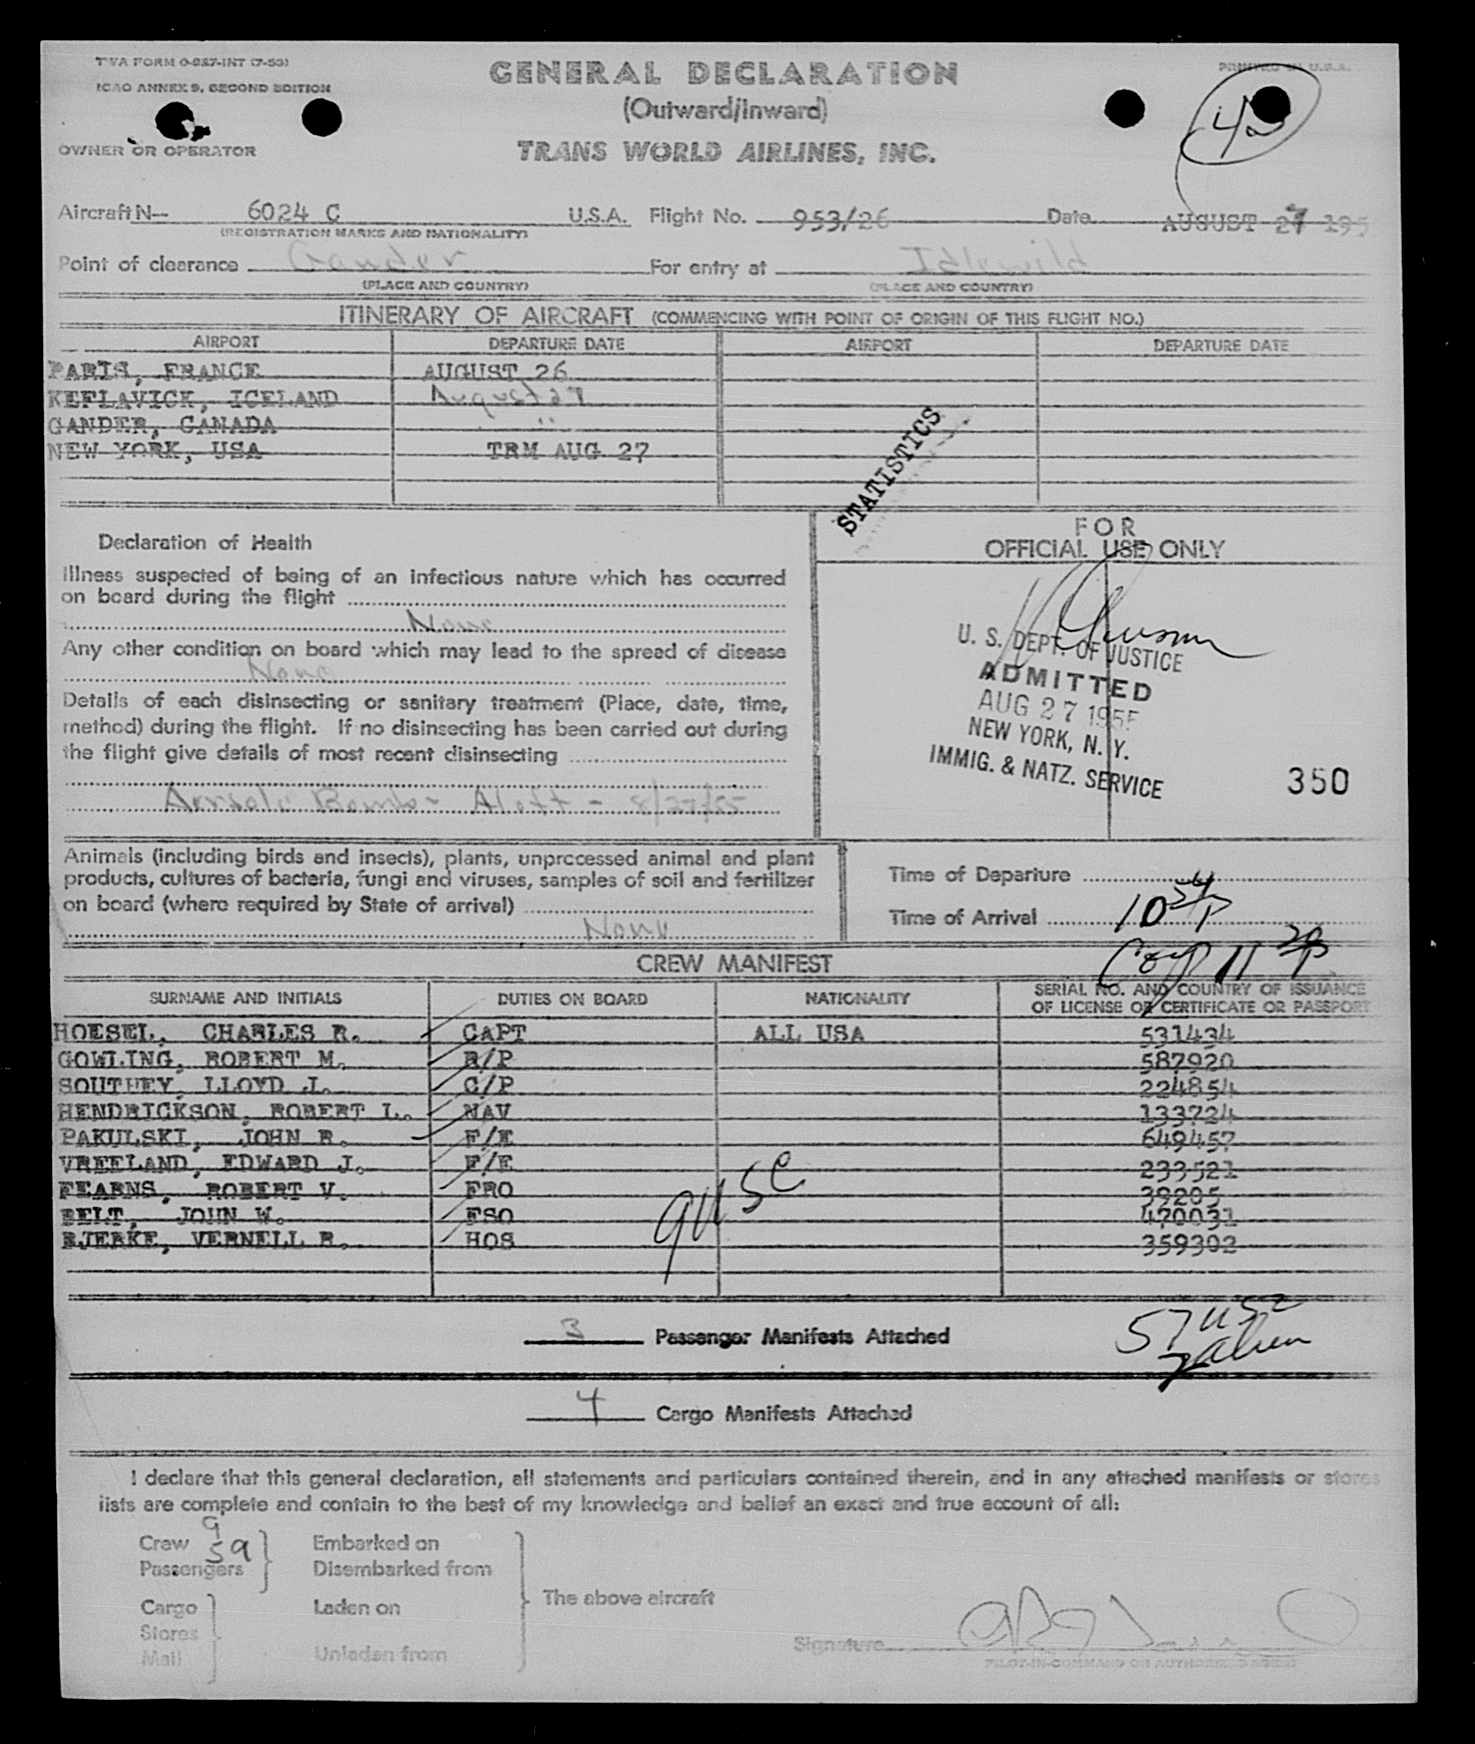 TWA FORM O-927-INT (7-53)
ICAO ANNEX 9, SECOND EDITION
PRINTED IN U.S.A.
GENERAL DECLARATION
(Outward/Inward)
42
OWNER OR OPERATOR
TRANS WORLD AIRLINES, INC.
Aircraft N- 6024 C U.S.A. Flight No. 953/26 Date AUGUST 27 195
(REGISTRATION MARKS AND NATIONALITY)
Point of clearance Gander For entry at Idlewild
(PLACE AND COUNTRY) (PLACE AND COUNTRY)
ITINERARY OF AIRCRAFT (COMMENCING WITH POINT OF ORIGIN OF THIS FLIGHT NO.)
AIRPORT DEPARTURE DATE AIRPORT DEPARTURE DATE
PARIS, FRANCE AUGUST 26
KEFLAVICK, ICELAND August 27
GANDER, CANADA "
NEW YORK, USA TRM AUG 27
STATISTICS
Declaration of Health
FOR
OFFICIAL USE ONLY
Illness suspected of being of an infectious nature which has occurred
on board during the flight
None
Any other condition on board which may lead to the spread of disease
None
Details of each disinsecting or sanitary treatment (Place, date, time,
method) during the flight. If no disinsecting has been carried out during
the flight give details of most recent disinsecting
Aerosole Bombs - Aloft - 8/27/55
U. S. DEPT. OF JUSTICE
ADMITTED
AUG 27 1955
NEW YORK, N. Y.
IMMIG. & NATZ. SERVICE
350
Animals (including birds and insects), plants, unprocessed animal and plant
products, cultures of bacteria, fungi and viruses, samples of soil and fertilizer
on board (where required by State of arrival)
None
Time of Departure
Time of Arrival 10 54 P
Comp 11 30 P
CREW MANIFEST
SURNAME AND INITIALS DUTIES ON BOARD NATIONALITY SERIAL NO. AND COUNTRY OF ISSUANCE
OF LICENSE OR CERTIFICATE OR PASSPORT
HOESEL, CHARLES R. CAPT ALL USA 531434
GOWLING, ROBERT M. R/P 587920
SOUTHEY, LLOYD J. C/P 224854
HENDRICKSON, ROBERT L. NAV 133724
PAKULSKI, JOHN R. F/E 649457
VREELAND, EDWARD J. F/E 233521
FEARNS, ROBERT V. FRO 39205
BELT, JOHN W. FSO 470031
BJERKE, VERNELL R. HOS 359302
9 USC
3 Passenger Manifests Attached
57 USC
2 alien
4 Cargo Manifests Attached
I declare that this general declaration, all statements and particulars contained therein, and in any attached manifests or stores
lists are complete and contain to the best of my knowledge and belief an exact and true account of all:
Crew 9 Embarked on
Passengers 59 Disembarked from
The above aircraft
Cargo Laden on
Stores
Mail Unladen from
Signature
PILOT-IN-COMMAND OR AUTHORIZED AGENT